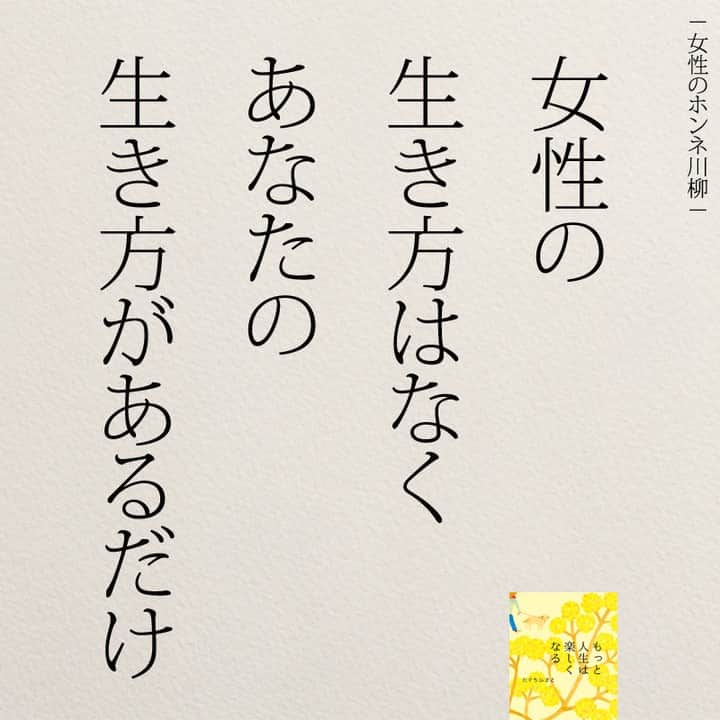 ー女性のホンネ川柳ー
女性の
生き方はなく
あなたの
生き方があるだけ
もっと
人生は
楽しく
なる
たぐちひさと